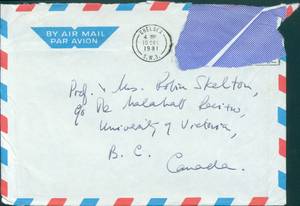 BY AIR MAIL
PAR AVION
CHELSEA
4 PM
10 DEC
1981
S.W.3.
Prof. & Mrs. Robin Skelton,
c/o The Malahat Review,
University of Victoria,
B. C.
Canada.